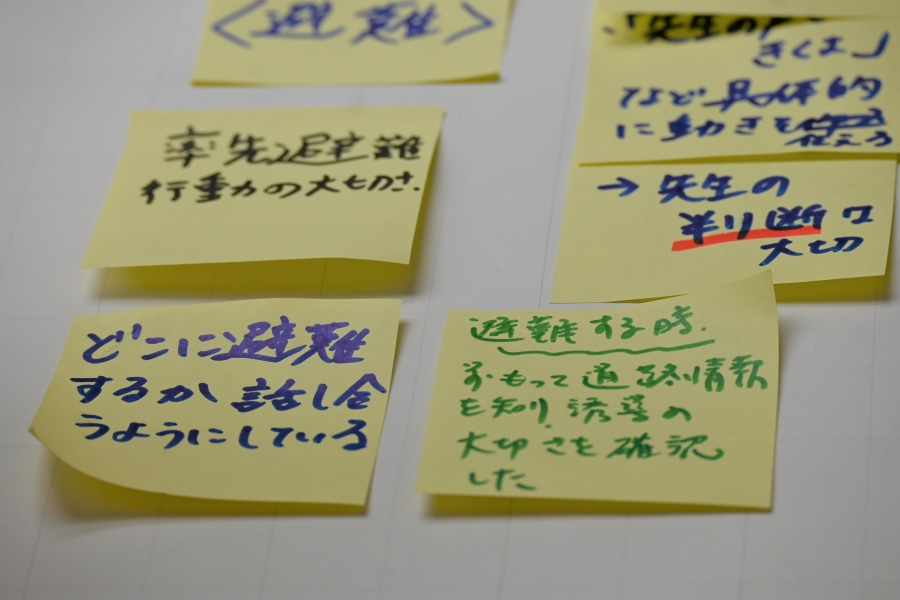 <避難>
率先避難
行動力の大切さ.
どこに避難
するか話し合
うようにしている
「先生の
きくよ」
など具体的
に動きを
伝えろ
→ 先生の
判断は
大切
避難する時.
前もって道路情報
を知り、誘導の
大切さを確認
した